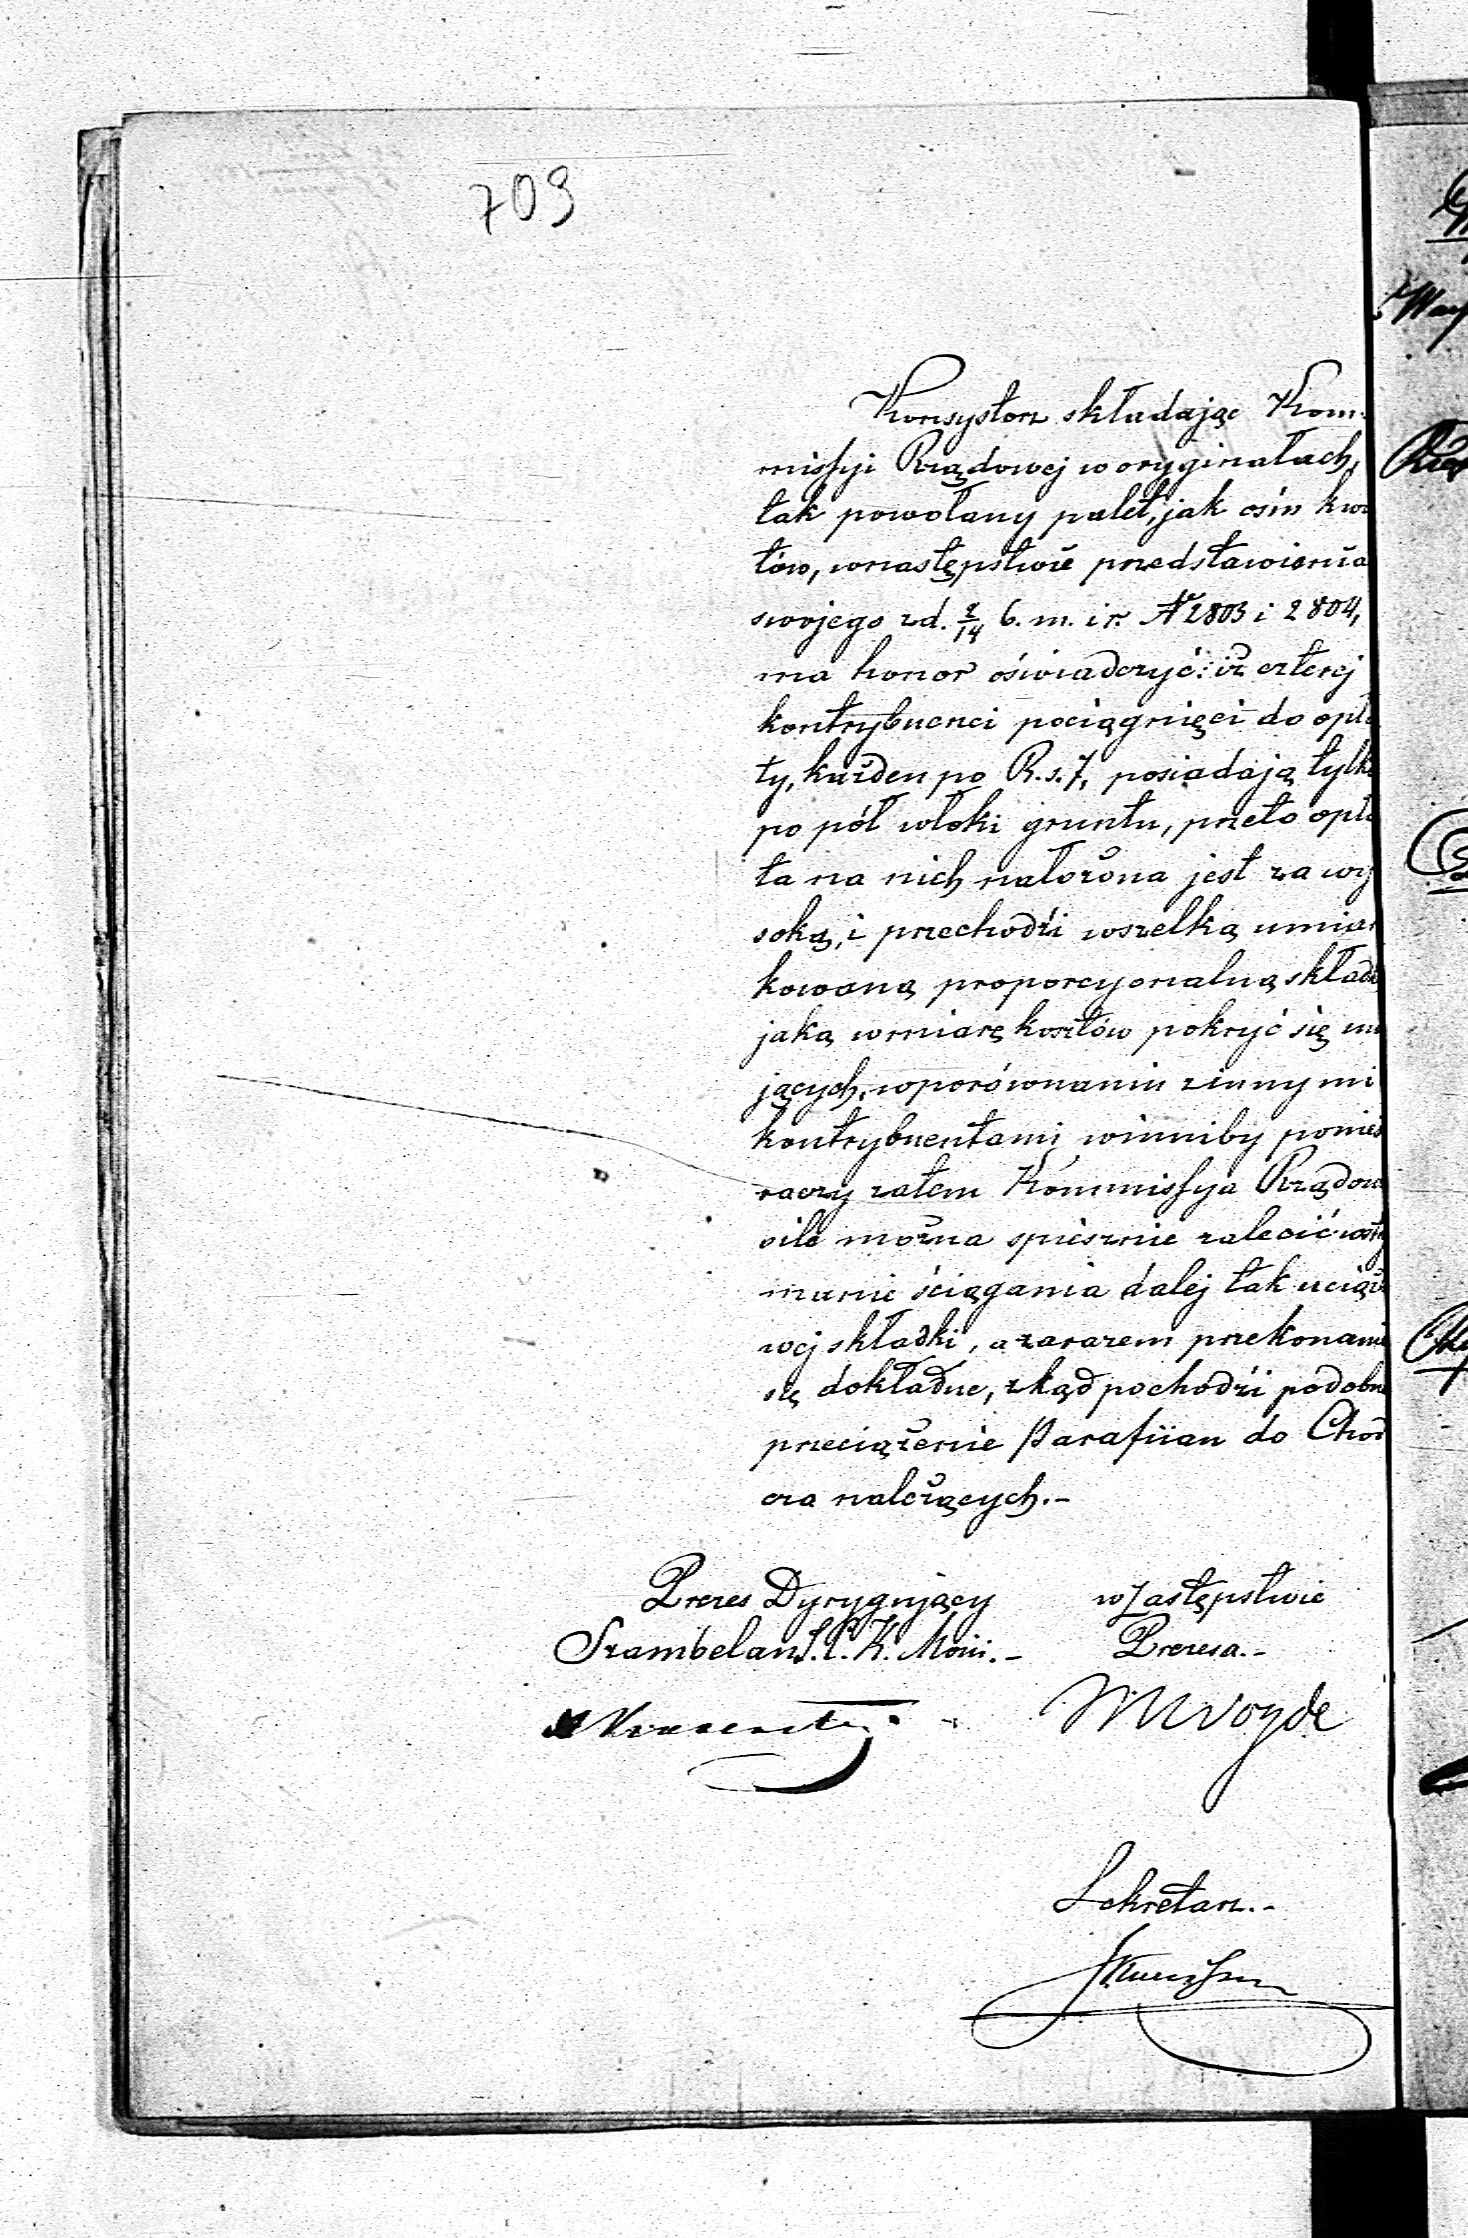 709
Konsystorz składając Kom-
missyi Rządowej w oryginałach,
tak powołany palet, jak ośm kwi
tów, wnastępstwie przedstawienia
swojego z d. 2/14 b. m. i r. N 2803 i 2804,
ma honor oświadczyć: iż czterej
kontrybuenci pociągnięci do opła
ty, każden po R.s. 7, posiadają tylko
po pół włoki gruntu, przeto opła
ta na nich nałożona jest za wy
soką, i przechodzi wszelką umiar
kowaną proporcyonalną składk
jaką wmiarę kosztów pokryć się ma
jących, wporównaniu zinnymi
kontrybuentami, winniby ponieś
raczy zatem Kommissya Rządow
oile można spiesznie zalecić wstrzy
manie ściągania dalej tak uciążl
wej składki, a zarazem przekonanie
się dokładne, zkąd pochodzi podobne
przeciążenie Parafiian do Chod
cza należących.-
Prezes Dyrygujący
Szambelan J. C. K. Mości.-
w Zastępstwie
Prezesa.-
Woyde
Sekretarz.-